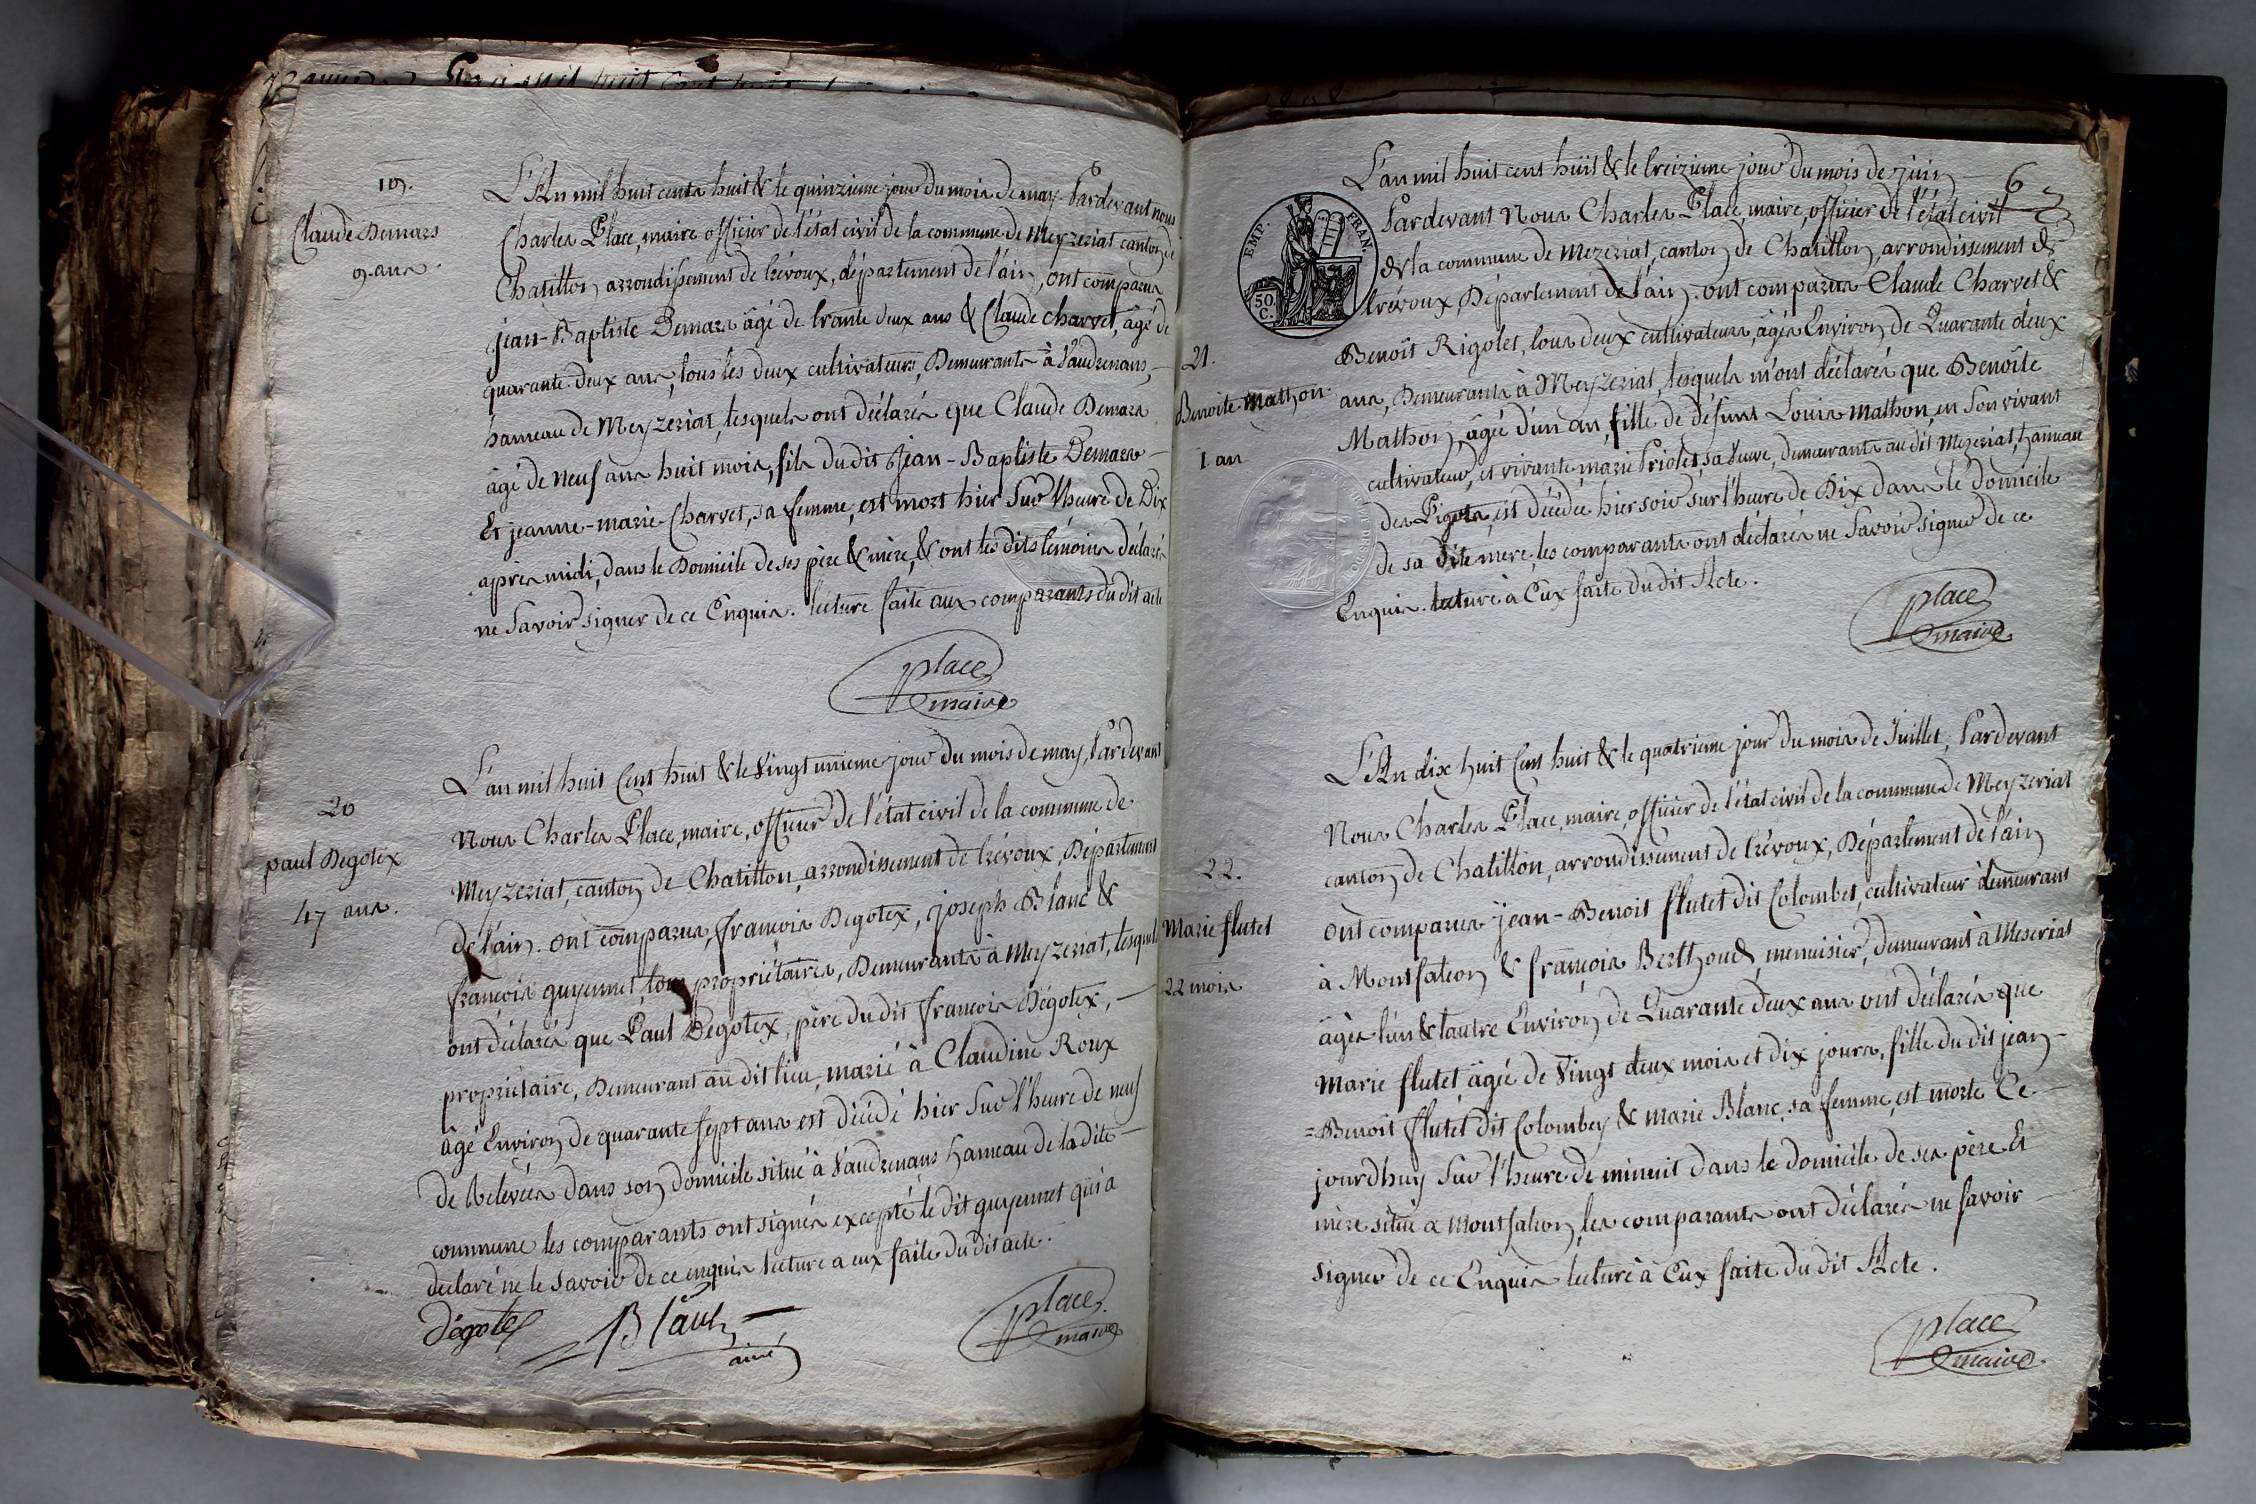 19.
Claude Demars
9. ans.
L'An mil huit cents huit & le quinzieme jour du mois de may. Pardevant nous
Charles Place, maire officier de l'état civil de la commune de Meyzeriat canton de
Chatillon arrondissement de trévoux, département de l'ain, ont comparus
jean-Baptiste Demars âgé de trante deux ans & Claude Charvet, âgé de
quarante deux ans, tous les deux cultivateurs, Demeurants à Vaudrenans,
hameau de Meyzeriat, lesquels ont déclarés que Claude Demars
âgé de neuf ans huit mois, fils du dit Jean-Baptiste Demars
Et jeanne-marie Charvet, sa femme, est mort hier Sur l'heure de Dix
après midi, dans le Domicile de ses père & mère, & ont les dits témoins déclarés
ne Savoir signer de ce Enquis. lecture faite aux comparants du dit acte
Place
maire
20
paul Degotex
47 ans.
L'an mil huit Cent huit & le Vingt unieme jour du mois de may, Pardevant
Nous Charles Place, maire, officier de l'état civil de la commune de
Meyzeriat, canton de Chatillon, arrondissement de trévoux, Département
de l'ain. ont comparus, françois Degotex, joseph Blanc &
françois guyennet, tous propriétaires, Demeurants à Meyzeriat, lesquels
ont déclarés que Paul Degotex, père du dit françois Dégotex,
propriétaire, Demeurant au dit lieu, marié à Claudine Roux
âgé Environ de quarante sept ans est décédé hier Sur l'heure de neuf
de Relevées dans son domicile situé à Vaudrenans hameau de la dite
commune les comparants ont signés excepté le dit guyennet qui a
declaré ne le savoir de ce enquis lecture a eux faite du dit acte.
Dégotex
Blanc
ainé
Place
maire
6
EMP. FRAN.
50 C.
L'an mil huit cent huit & le treizieme jour du mois de juin
Pardevant Nous Charles Place, maire, officier de l'état civil
de la commune de Mezeriat, canton de Chatillon arrondissement de
trévoux, Département de l'ain. ont comparus Claude Charvet &
21.
Benoite Mathon
1. an
Benoît Rigolet, tous deux cultivateurs, âgés Environ de Quarante deux
ans, Demeurants à Meyzeriat, lesquels m'ont déclarés que Benoîte
Mathon, âgée d'un an, fille de défunt Louis Mathon, en son vivant
cultivateur, et vivante marie Priolet, sa Veuve, demeurants au dit Mezeriat, hameau
des Pigots, est décédée hier soir sur l'heure de Dix dans le domicile
de sa dite mere, les comparants ont déclarés ne Savoir signer de ce
Enquis. lecture à Eux faite du dit Acte.
Place
maire
22.
Marie flutet
22 mois
L'An dix huit Cent huit & le quatrieme jour du mois de Juillet, Pardevant
Nous Charles Place, maire, officier de l'état civil de la commune de Meyzeriat
canton de Chatillon, arrondissement de trévoux, Département de l'ain
ont comparus jean-Benoit flutet dit Colombet, cultivateur demeurant
à Montfalcon & françois Berthoud, menuisier, demeurant à Meseriat
âgés l'un & l'autre Environ de Quarante deux ans ont déclarés que
Marie flutet âgée de Vingt deux mois et dix jours, fille du dit jean-
=Benoit flutet dit Colombey & marie Blanc, sa femme, est morte Ce
jourdhuy Sur l'heure de minuit dans le domicile de ses père Et
mère situé a Montfalcon, les comparants ont déclarés ne savoir
signer de ce Enquis lecture à Eux faite du dit Acte.
Place
maire